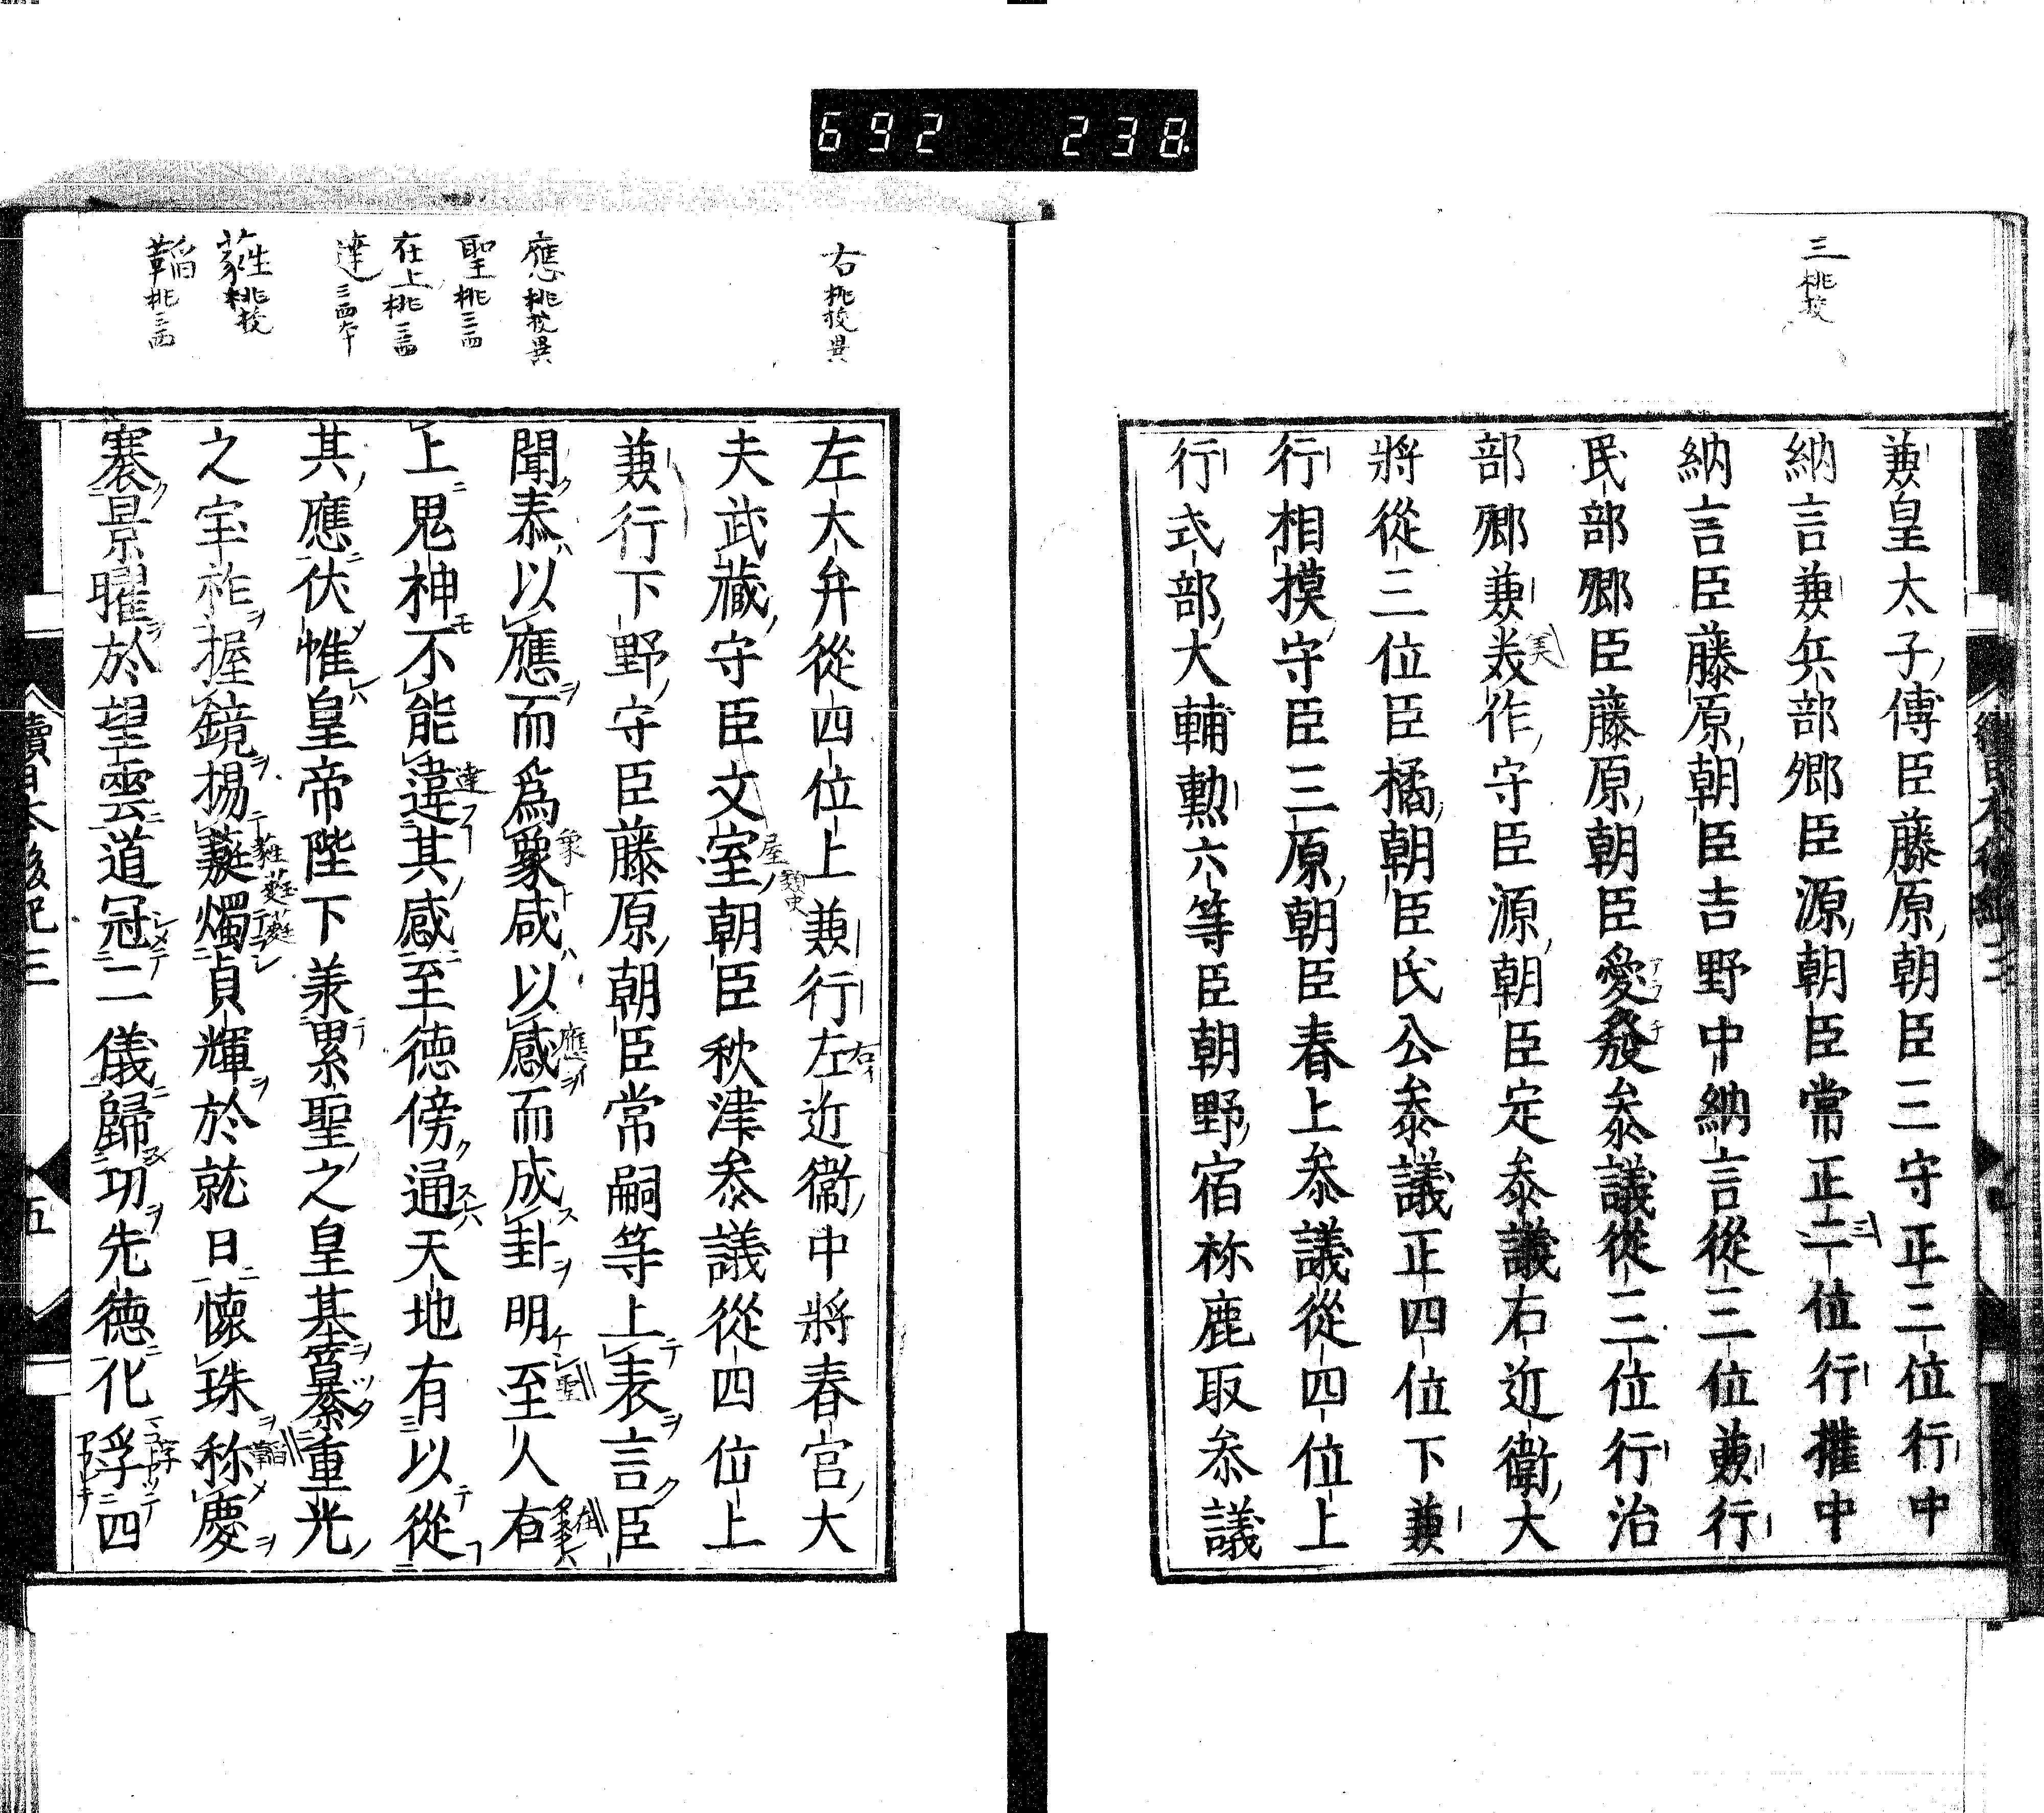 692 238
三 桃校
兼皇太子傅臣藤原朝臣三守正三位行中
納言兼兵部卿臣源朝臣常正二位行權中
納言臣藤原朝臣吉野中納言從三位兼行
民部卿臣藤原朝臣愛發叅議從三位行治
部卿兼美作守臣源朝臣定叅議右近衛大
將從三位臣橘朝臣氏公叅議正四位下兼
行相摸守臣三原朝臣春上叅議從四位上
行式部大輔勲六等臣朝野宿祢鹿取叅議
右 桃校異
應 桃校異
聖 桃三西
在上 桃三西
達 三西本
桃校
韜 桃三西
左大弁從四位上兼行左近衛中將春宮大
夫武藏守臣文室朝臣秋津叅議從四位上
兼行下野守臣藤原朝臣常嗣等上表言臣
聞泰以應而爲象咸以感而成卦明至人右
上鬼神不能違其感至德傍通天地有以從
其應伏惟皇帝陛下承累聖之皇基纂重光
之宝祚握鏡揚蕤燭貞輝於就日懷珠称慶
褰景曜於望雲道冠二儀歸功先德化孚四
續日本後紀三
五